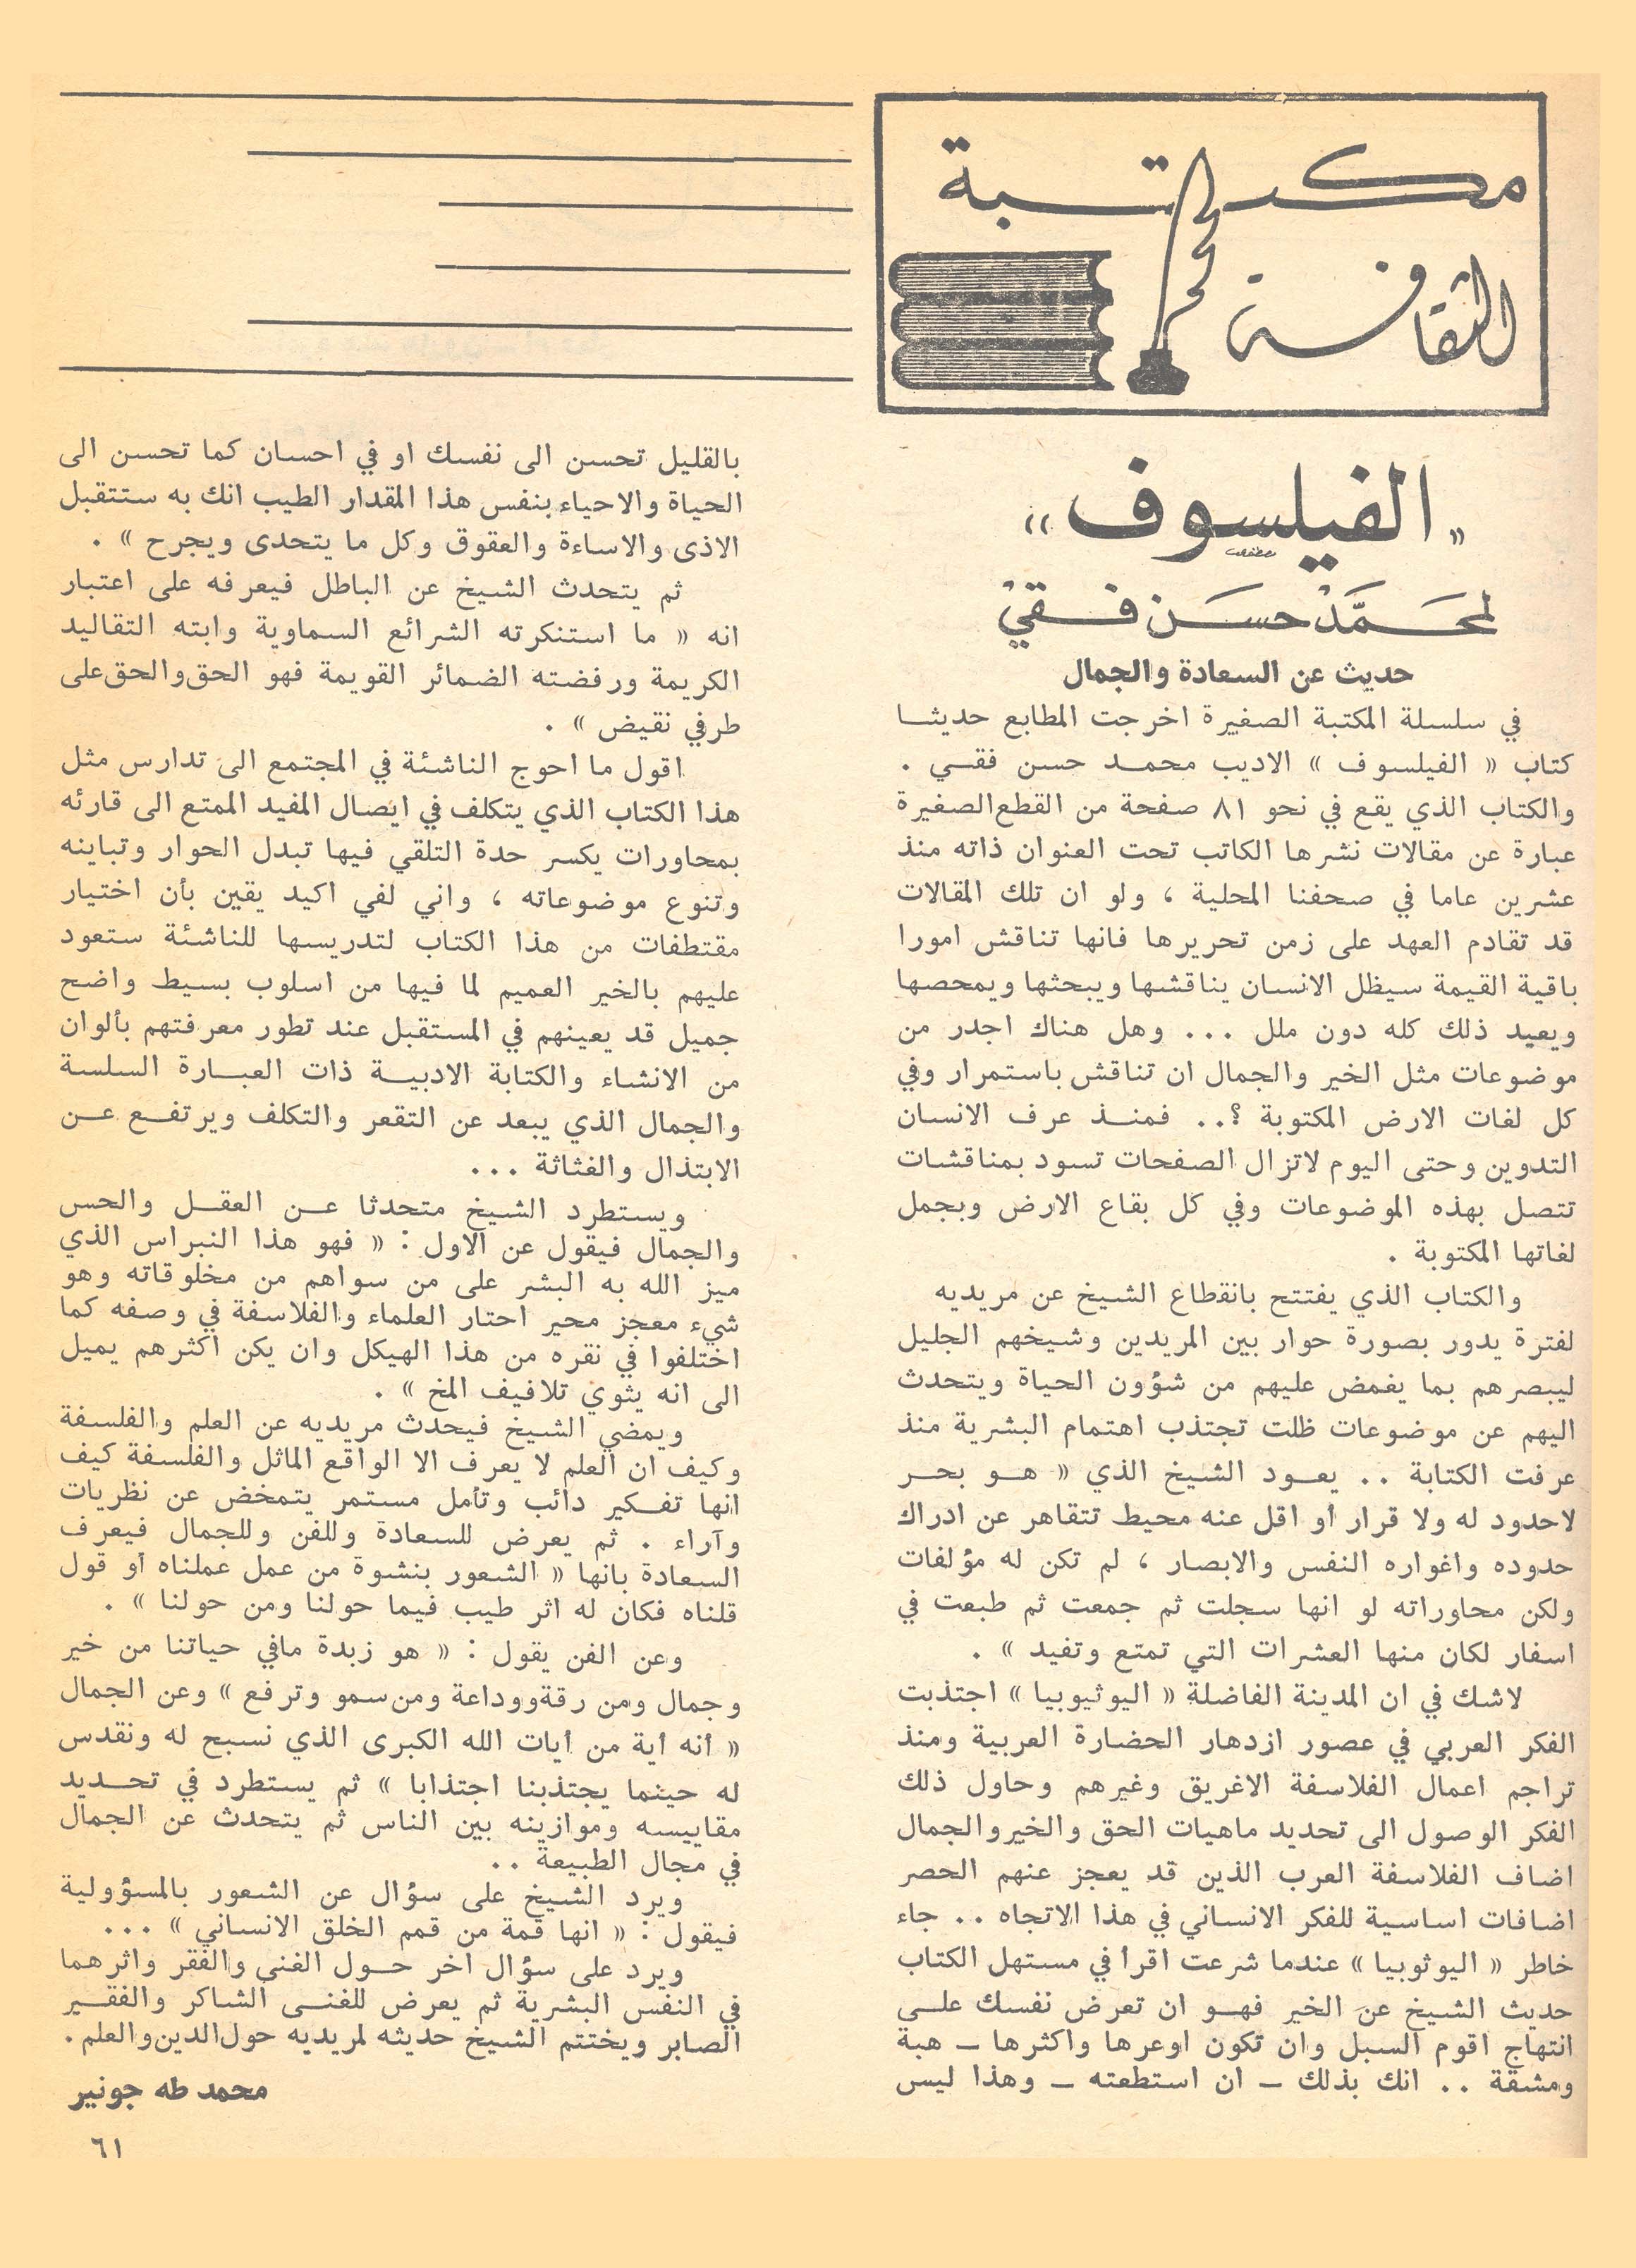 مكتبة
الثقافة
« الفيلسوف »
لمحمد حسن فقي
حديث عن السعادة والجمال
في سلسلة المكتبة الصغيرة اخرجت المطابع حديثا
كتاب « الفيلسوف » الاديب محمد حسن فقي .
والكتاب الذي يقع في نحو ٨١ صفحة من القطع الصغيرة
عبارة عن مقالات نشرها الكاتب تحت العنوان ذاته منذ
عشرين عاما في صحفنا المحلية ، ولو ان تلك المقالات
قد تقادم العهد على زمن تحريرها فانها تناقش امورا
باقية القيمة سيظل الانسان يناقشها ويبحثها ويمحصها
ويعيد ذلك كله دون ملل ... وهل هناك اجدر من
موضوعات مثل الخير والجمال ان تناقش باستمرار وفي
كل لغات الارض المكتوبة ؟.. فمنذ عرف الانسان
التدوين وحتى اليوم لاتزال الصفحات تسود بمناقشات
تتصل بهذه الموضوعات وفي كل بقاع الارض وبجمل
لغاتها المكتوبة .
والكتاب الذي يفتتح بانقطاع الشيخ عن مريديه
لفترة يدور بصورة حوار بين المريدين وشيخهم الجليل
ليبصرهم بما يغمض عليهم من شؤون الحياة ويتحدث
اليهم عن موضوعات ظلت تجتذب اهتمام البشرية منذ
عرفت الكتابة .. يعود الشيخ الذي « هو بحر
لاحدود له ولا قرار أو اقل عنه محيط تتقاهر عن ادراك
حدوده واغواره النفس والابصار ، لم تكن له مؤلفات
ولكن محاوراته لو انها سجلت ثم جمعت ثم طبعت في
اسفار لكان منها العشرات التي تمتع وتفيد » .
لاشك في ان المدينة الفاضلة « اليوثيوبيا » اجتذبت
الفكر العربي في عصور ازدهار الحضارة العربية ومنذ
تراجم اعمال الفلاسفة الاغريق وغيرهم وحاول ذلك
الفكر الوصول الى تحديد ماهيات الحق والخير والجمال
اضاف الفلاسفة العرب الذين قد يعجز عنهم الحصر
اضافات اساسية للفكر الانساني في هذا الاتجاه .. جاء
خاطر « اليوثوبيا » عندما شرعت اقرأ في مستهل الكتاب
حديث الشيخ عن الخير فهو ان تعرض نفسك على
انتهاج اقوم السبل وان تكون اوعرها واكثرها – هبة
ومشقة .. انك بذلك – ان استطعته – وهذا ليس
بالقليل تحسن الى نفسك او في احسان كما تحسن الى
الحياة والاحياء بنفس هذا المقدار الطيب انك به ستتقبل
الاذى والاساءة والعقوق وكل ما يتحدى ويجرح » .
ثم يتحدث الشيخ عن الباطل فيعرفه على اعتبار
انه « ما استنكرته الشرائع السماوية وابته التقاليد
الكريمة ورفضته الضمائر القويمة فهو الحق والحق على
طرفي نقيض » .
اقول ما احوج الناشئة في المجتمع الى تدارس مثل
هذا الكتاب الذي يتكلف في ايصال المفيد الممتع الى قارئه
بمحاورات يكسر حدة التلقي فيها تبدل الحوار وتباينه
وتنوع موضوعاته ، واني لفي اكيد يقين بأن اختيار
مقتطفات من هذا الكتاب لتدريسها للناشئة ستعود
عليهم بالخير العميم لما فيها من اسلوب بسيط واضح
جميل قد يعينهم في المستقبل عند تطور معرفتهم بألوان
من الانشاء والكتابة الادبية ذات العبارة السلسة
والجمال الذي يبعد عن التقعر والتكلف ويرتفع عن
الابتذال والغثاثة ...
ويستطرد الشيخ متحدثا عن العقل والحس
والجمال فيقول عن الاول : « فهو هذا النبراس الذي
ميز الله به البشر على من سواهم من مخلوقاته وهو
شيء معجز محير احتار العلماء والفلاسفة في وصفه كما
اختلفوا في نقره من هذا الهيكل وان يكن اكثرهم يميل
الى انه يثوي تلافيف المخ » .
ويمضي الشيخ فيحدث مريديه عن العلم والفلسفة
وكيف ان العلم لا يعرف الا الواقع الماثل والفلسفة كيف
انها تفكير دائب وتأمل مستمر يتمخض عن نظريات
وآراء . ثم يعرض للسعادة وللفن وللجمال فيعرف
السعادة بانها « الشعور بنشوة من عمل عملناه أو قول
قلناه فكان له اثر طيب فيما حولنا ومن حولنا » .
وعن الفن يقول : « هو زبدة مافي حياتنا من خير
وجمال ومن رقة ووداعة ومن سمو وترفع » وعن الجمال
« أنه أية من أيات الله الكبرى الذي نسبح له ونقدس
له حيثما يجتذبنا اجتذابا » ثم يستطرد في تحديد
مقاييسه وموازينه بين الناس ثم يتحدث عن الجمال
في مجال الطبيعة ..
ويرد الشيخ على سؤال عن الشعور بالمسؤولية
فيقول : « انها قمة من قمم الخلق الانساني » ...
ويرد على سؤال اخر حول الغنى والفقر واثرهما
في النفس البشرية ثم يعرض للغنى الشاكر والفقير
الصابر ويختتم الشيخ حديثه لمريديه حول الدين والعلم .
محمد طه جونير
٦١